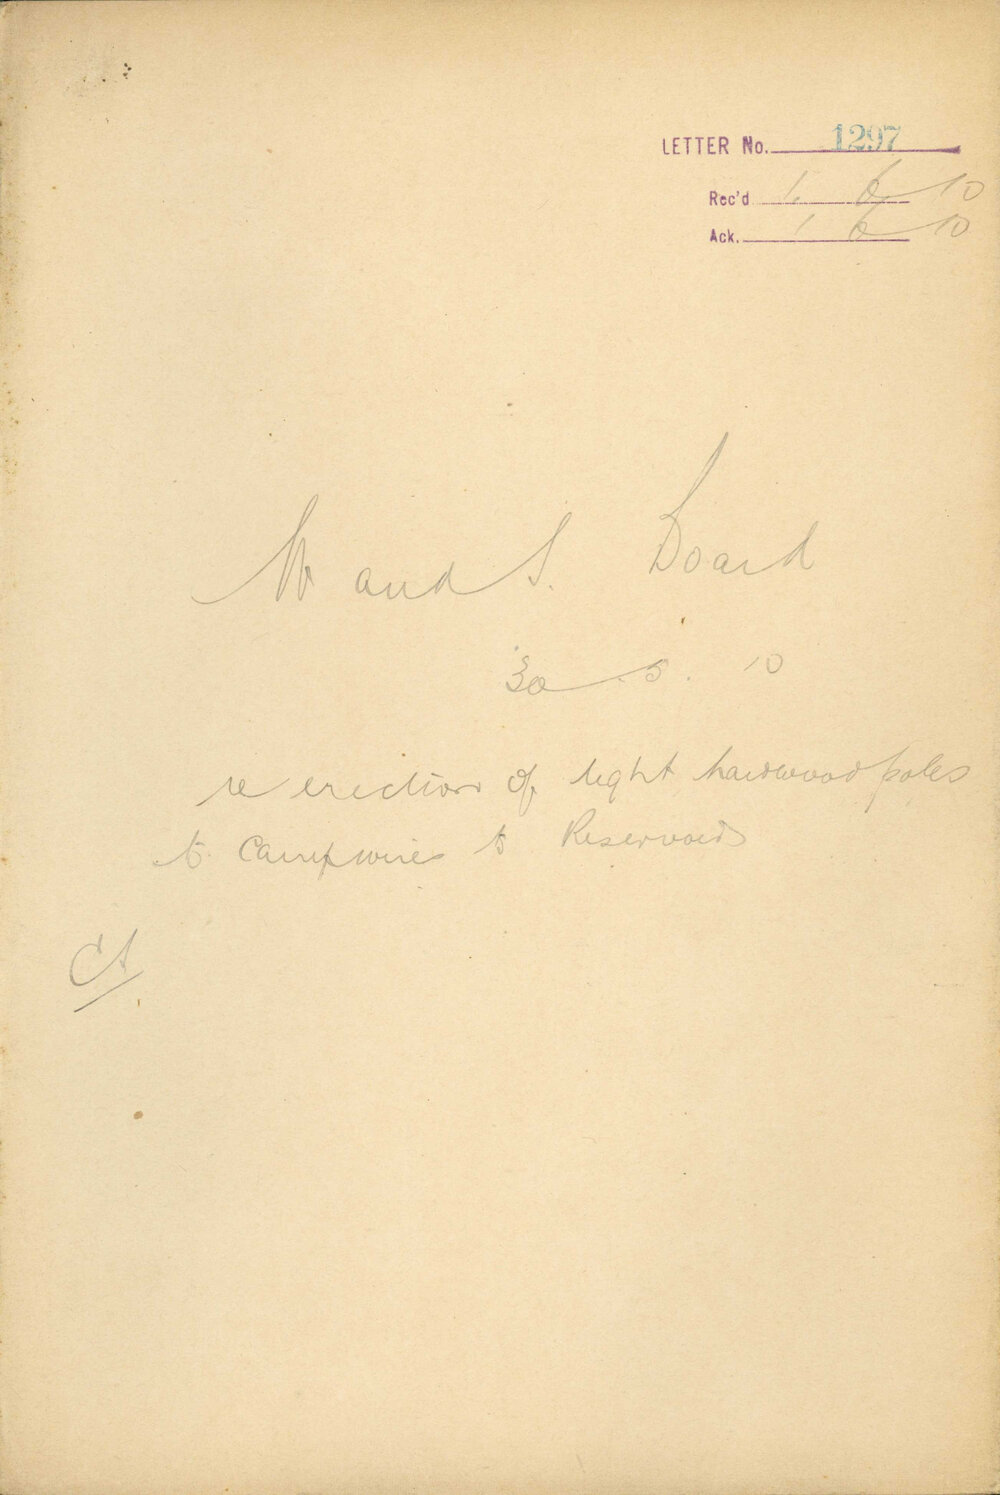 LETTER No. 1297
Rec'd 1. 6. 10
Ack. 1 6 10
W and S. Board
30. 5. 10
re erection of light hardwood poles
to carry wires to Reservoir